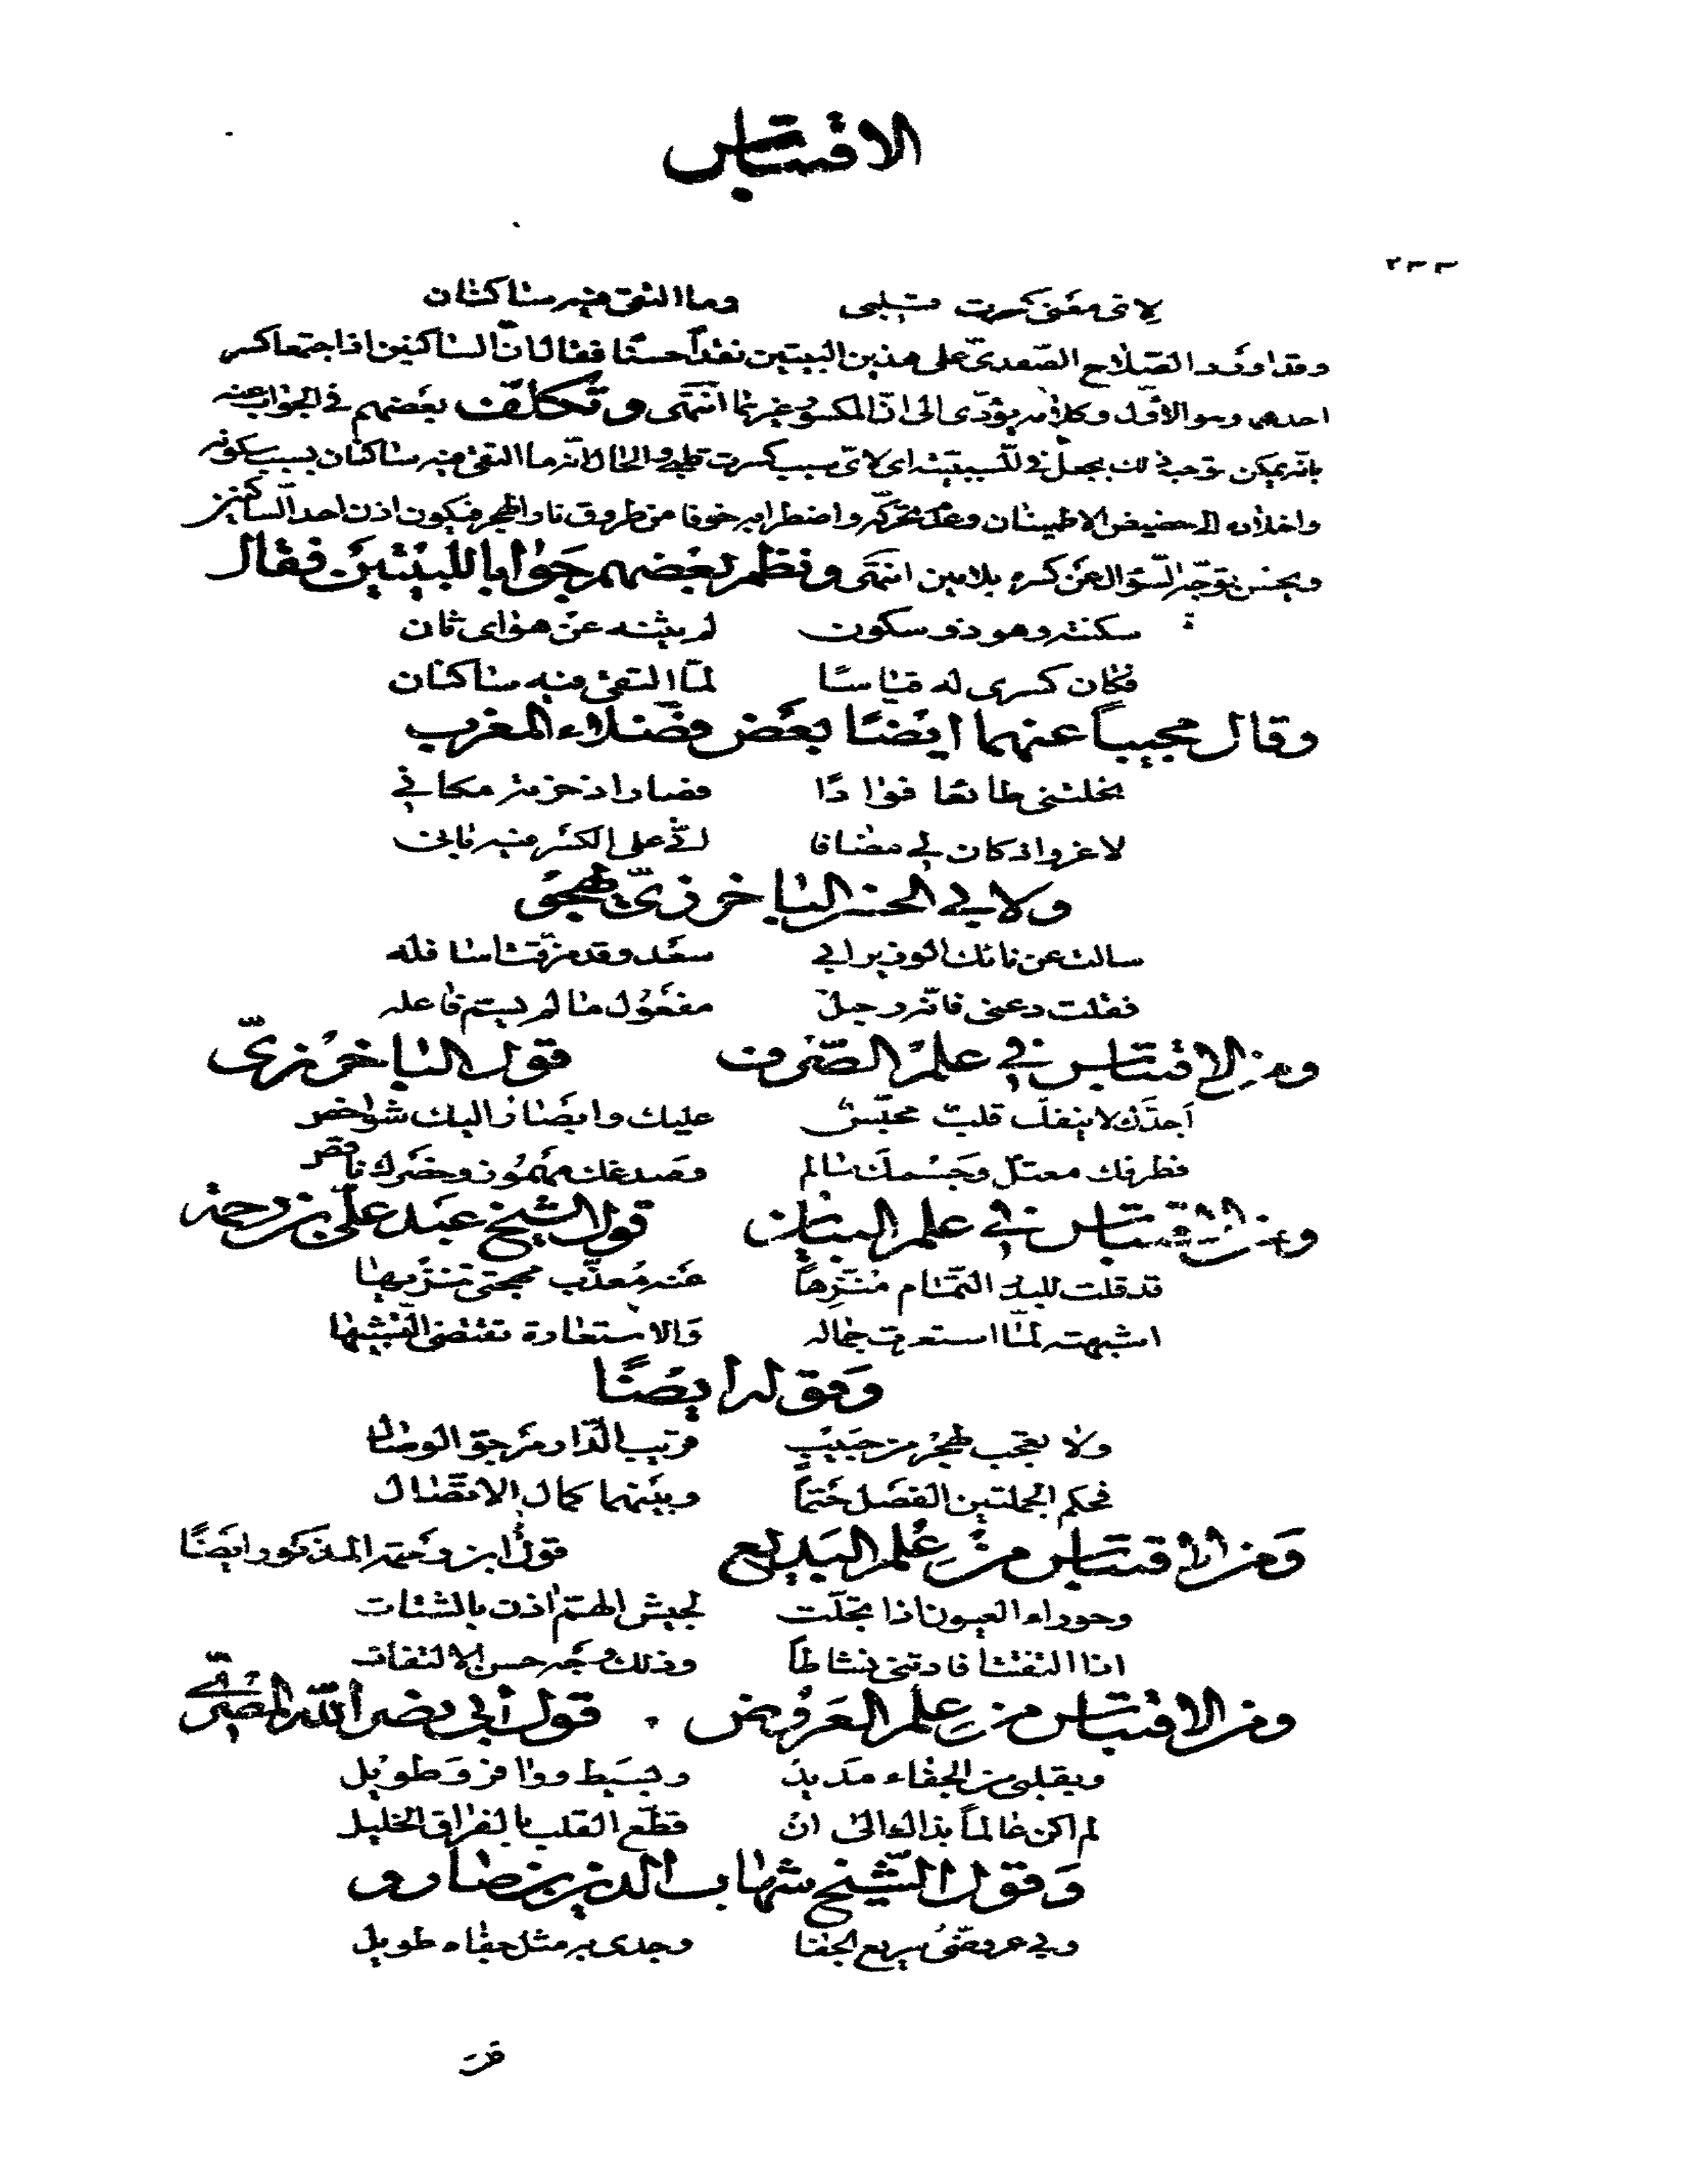 الاقتباس
٢٣٣
لاي معنى كسرت قلبي وما التقى فيه ساكنان
وقد اورد الصلاح الصفدىّ على هذين البيتين نقداً حسنًا فقال انّ الساكنين اذا اجتمعا كسر
احدهما وهو الاوّل وكلامه يؤدّى الى انّ المكسور غيرهما انتهَى وتكلّف بعضهم في الجواب عنه
بانّه يمكن توجيه ذلك بجعل في للسببيّة اى لاىّ سبب كسرت قلبي والحال انه ما التقى فيه ساكنان بسبب سكونه
واخلاده الى حضيض الاطمينان وعدم تحرّكه واضطرابه خوفا من طروق نار الهجر فيكون اذن احد الساكنين
ويحسن توجّه السّؤال عن كسره بلامين انتهَى ونظم بعضهم جَوابا للبيتين فقال
سكنته وهو ذو سكون لم يثنه عن هواى ثان
فكان كسرى له قياسًا لمّا التقى فيه ساكنان
وقال مجيباً عنهما ايضًا بعَض فضلاء المغرب
نحلتنى طائعا فؤادًا فصار اذ حزته مكاني
لا غرو اذ كان لي مضافا انّي على الكسر فيه باني
ولابي الحسن الباخرزىّ يهجو
سالت عن نائك الوزير ابي سعَد وقد مزقت اسافله
فقلت دعنى فانّه رجل مفعُول ما لم يسمّ فاعله
ومن الاقتباس في علم الصّرف قول الباخرزىّ
اَجدّك لا ينفكّ قلبٌ محبّس عليك وابصَار اليك شواخص
فطرفك معتلّ وجَسْمك سالم وصدغك مهمُوز وخصَرك ناقص
ومن الاقتباس في علم البيان قول الشيخ عبَد علىّ بن رحمة
قد قلت للبدر التّمام مُنَزِّهاً عَنه مُعذّب مهجتى تنزيها
اشبهته لمّا استعرت جماله وَالاستعارة تقتضى التّشبيها
وَقوله ايضًا
ولا تعجب لهجر من حَبيبٍ قريب الدّار مَرجوّ الوصال
فحكم الجملتين الفصَل حَتماً وبينهما كمال الاتّصال
وَمن الاقتباس من عِلم البَديع قول ابن رحمَة المذكور ايضًا
وحوراء العيون اذا تجلّت لجيش الهمّ اذن بالشتات
اذا التفتت افادتنى نشاطاً وذلك وجَه حسن الالتفات
ومن الاقتباس من عِلم العَروض قول أبي نصر الله المصرىّ
وبقلبى من الجفاء مَديدٌ وبسَيط ووافر وَطويل
لم اكن عالماً بذاك الى انْ قطّع القلب بالفراق الخليل
وَقول الشّيخ شهاب الدين بن صارو
وبي عروضىّ سريع الجفا وجدى به مثل جفاه طويل